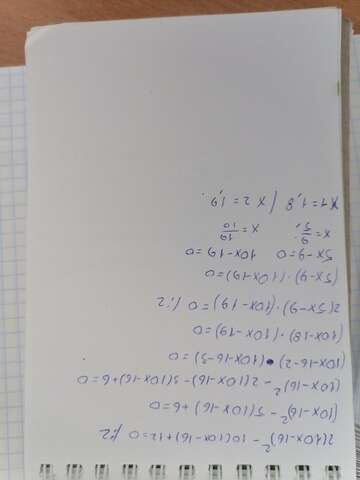 2(10x-16)² - 10(10x-16)+12=0 /:2
(10x-16)² - 5(10x-16)+6=0
(10x-16)² - 2(10x-16) - 3(10x-16)+6=0
(10x-16-2)•(10x-16-3)=0
(10x-18)•(10x-19)=0
2(5x-9)•(10x-19)=0 /:2
(5x-9)•(10x-19)=0
5x-9=0 10x-19=0
x=9/5; x=19/10
x1=1,8 / x2=1,9.